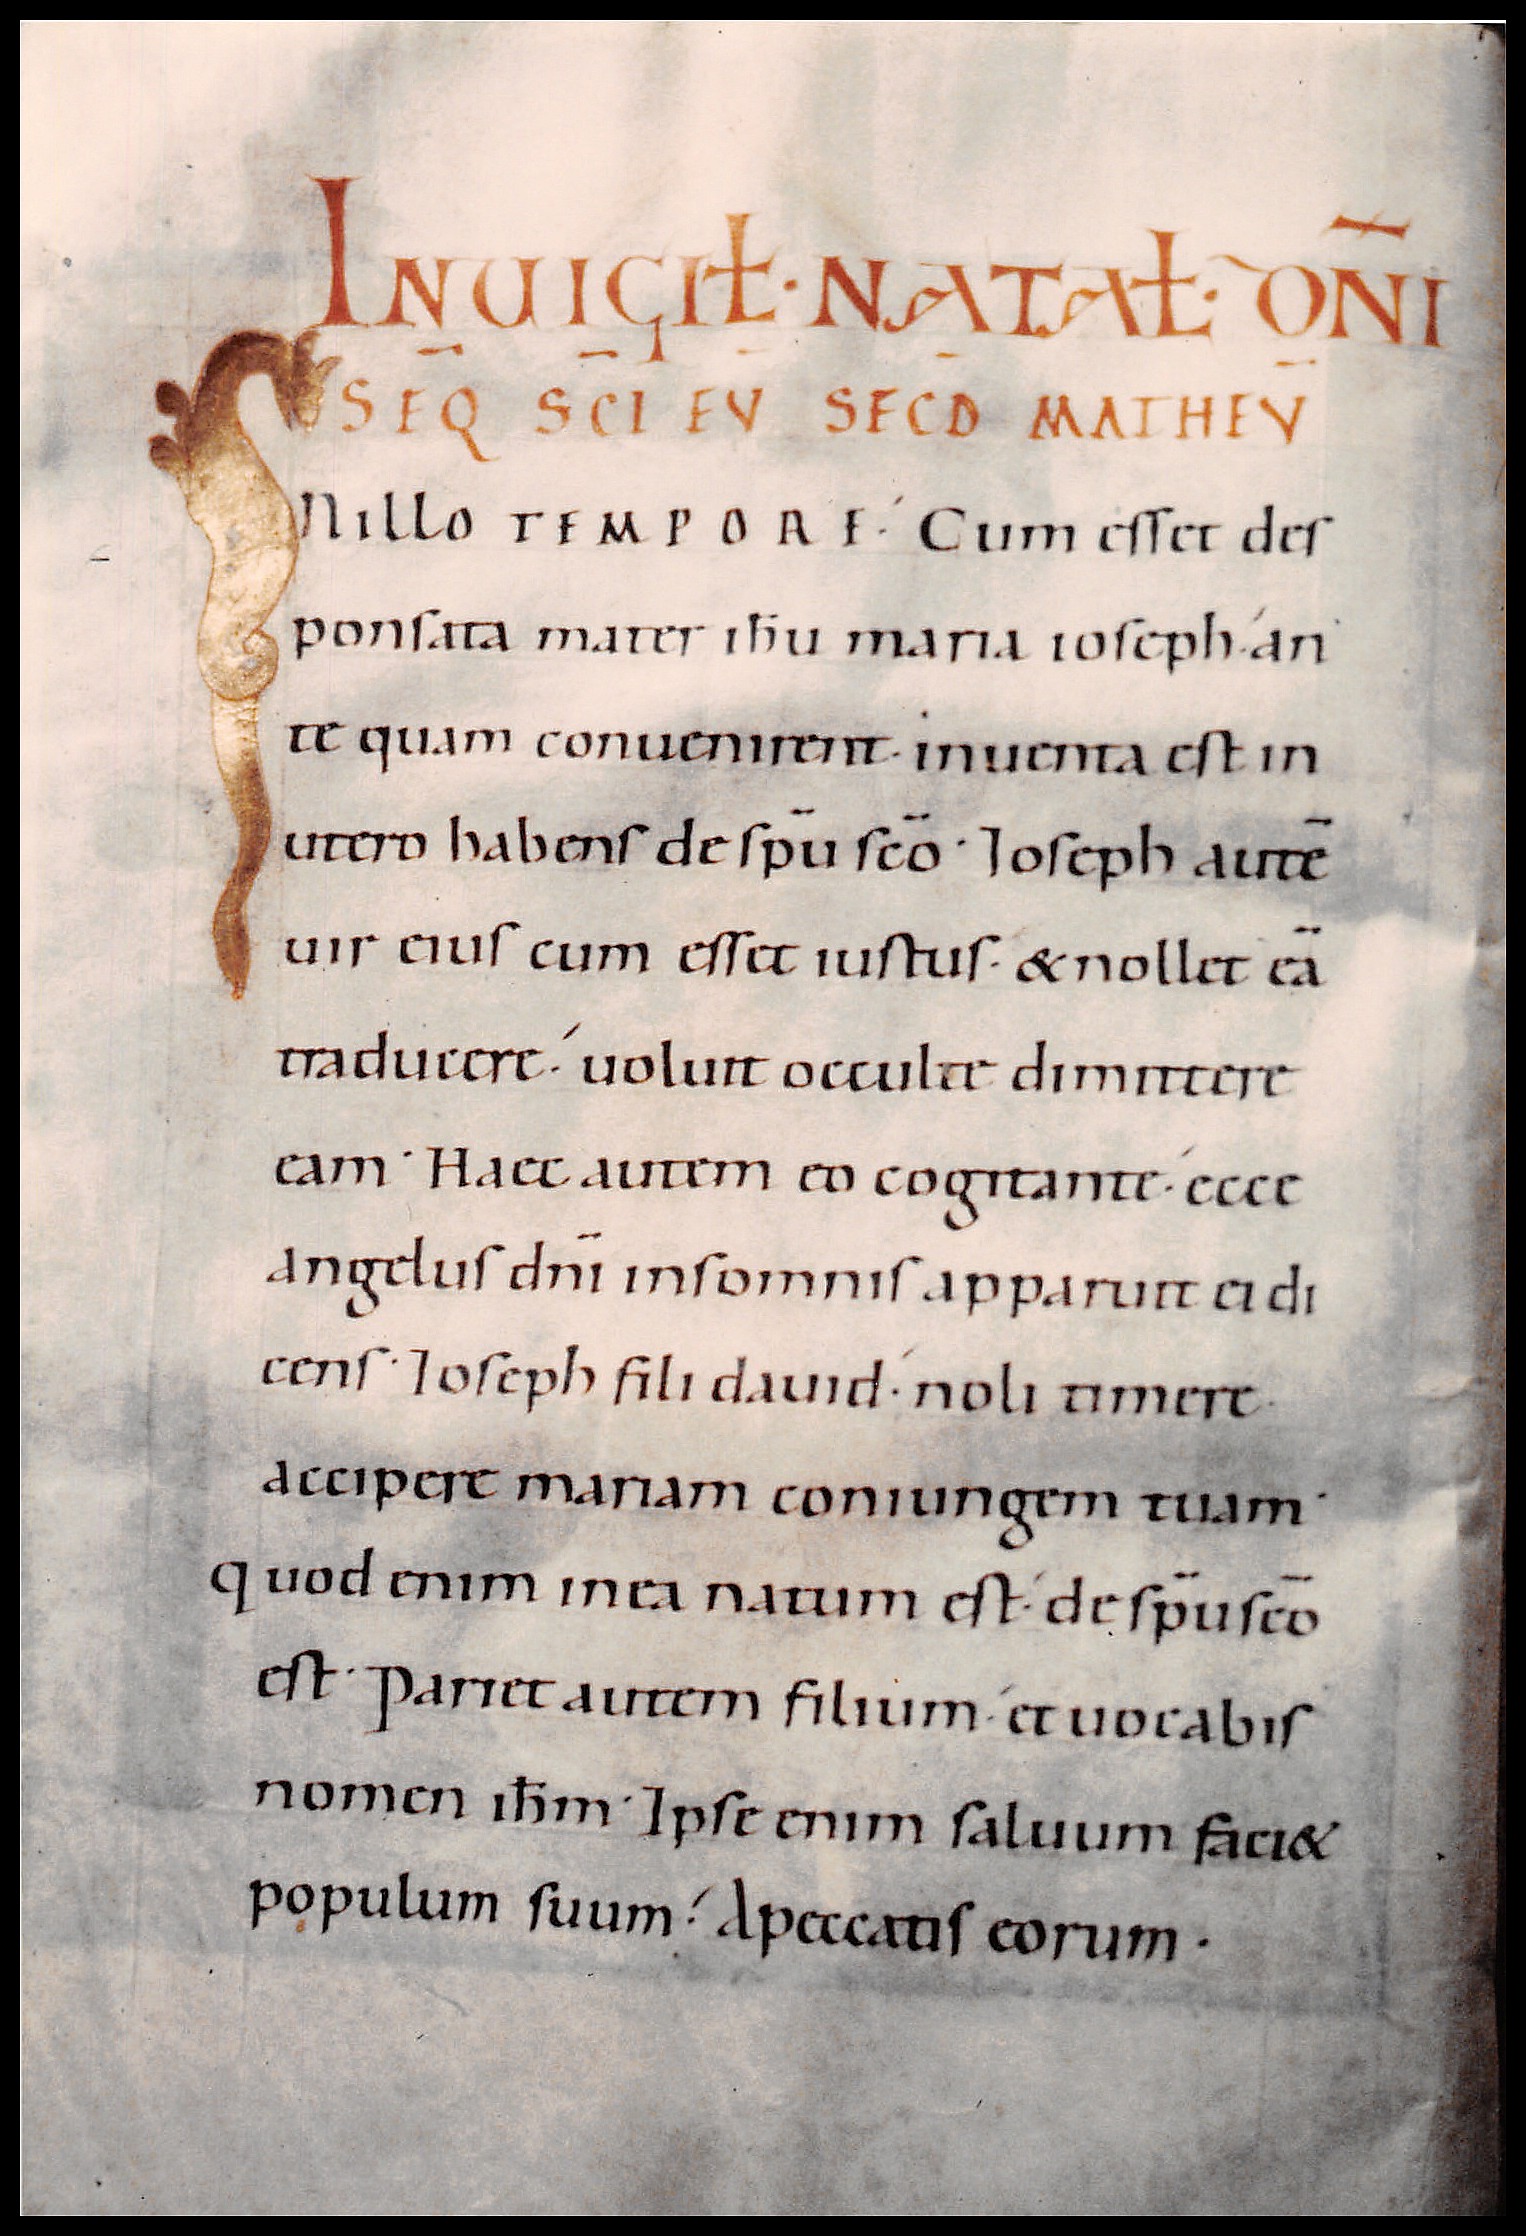 IN UIGIŁ · NATAŁ · DÑI
SEQ̄ SC̄I EV̄ SEC̄D MATHEV̄
N ILLO TEMPORE · Cum esset des
ponsata mater ih̄u maria ioseph · an
te quam conuenirent · inuenta est in
utero habens de sp̄u sc̄o · Ioseph autē
uir eius cum esset iustus · & nollet eā
traducere · uoluit occulte dimittere
eam · Haec autem eo cogitante · ecce
angelus dn̄i in somnis apparuit ei di
cens · Ioseph fili dauid · noli timere
accipere mariam coniungem tuam ·
quod enim in ea natum est · de sp̄u sc̄o
est · Pariet autem filium · et uocabis
nomen ih̄m · Ipse enim saluum faci&
populum suum · A peccatis eorum ·